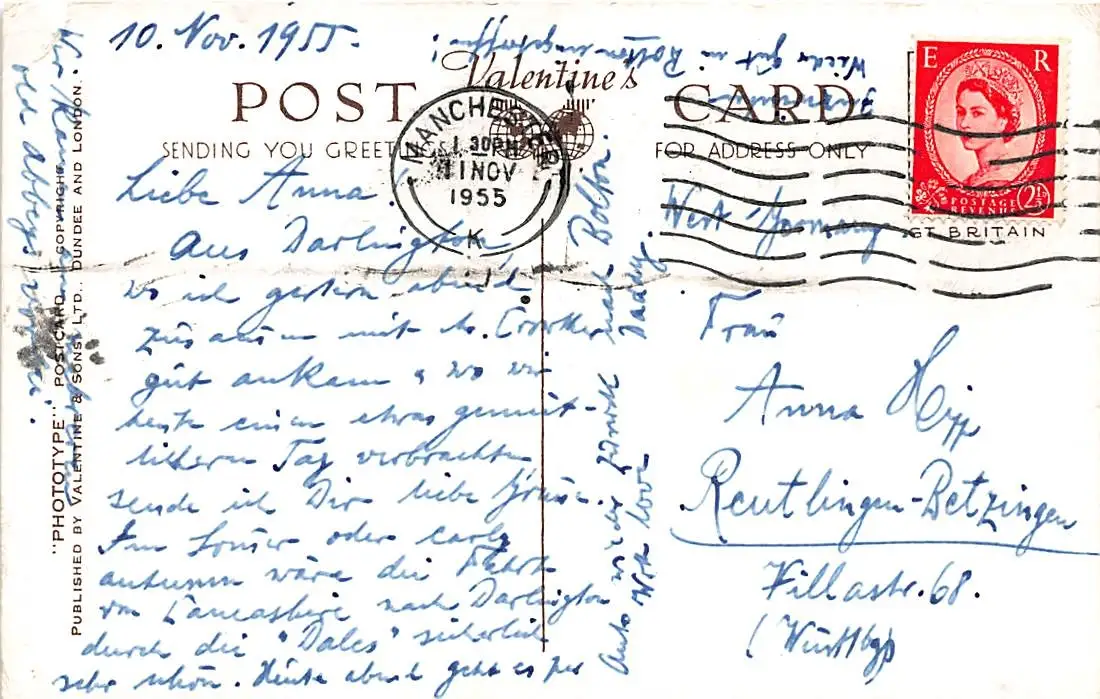 10. Nov. 1955.
Valentine's
POST CARD
SENDING YOU GREETINGS
FOR ADDRESS ONLY
MANCHESTER
1 30PM
11 NOV
1955
K
E R
POSTAGE REVENUE
2½
GT BRITAIN
Liebe Anna!
Aus Darlington,
wo ich gestern abend
zusammen mit Mr.
gut ankam & wo wir
heute einen etwas gemüt-
licheren Tag verbrachten
sende ich Dir liebe Grüsse.
Im Somer oder early
autumn wäre die Fahrt
von Lancashire nach Darlington
durch die "Dales" sicherlich
sehr schön. Heute abend geht es per
Auto wieder zurück nach Bolton.
With love Daddy.
Wieder gut in Bolton eingetroffen!
old abbeys vorbei!
West Germany
Frau
Anna Hipp
Reutlingen-Betzingen
Villastr. 68.
(Württbg)
"PHOTOTYPE" POSTCARD COPYRIGHT
PUBLISHED BY VALENTINE & SONS LTD., DUNDEE AND LONDON.